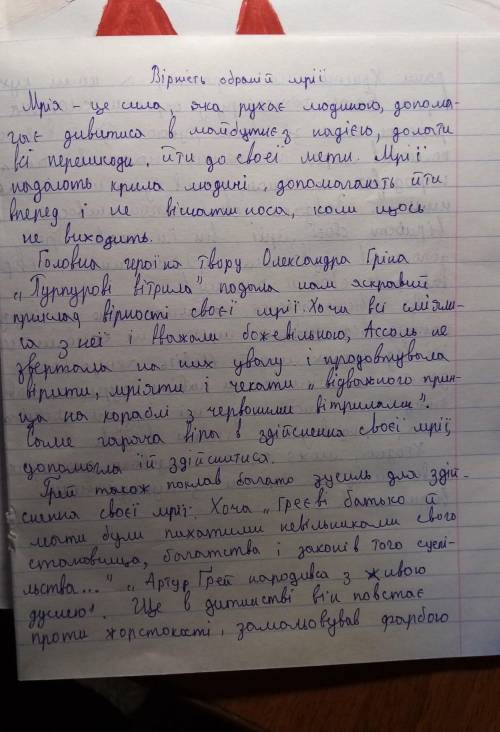 Вірність обраній мрії
Мрія - це сила, яка рухає людиною, допома-
гає дивитися в майбутнє з надією, долати
всі перешкоди, йти до своєї мети. Мрії
надають крила людині, допомагають йти
вперед і не вішати носа, коли щось
не виходить.
Головна героїня твору Олександра Гріна
„Пурпурові вітрила" подала нам яскравий
приклад вірності своєї мрії. Хоча всі сміяли-
ся з неї і вважали божевільною, Ассоль не
звертала на них увагу і продовжувала
вірити, мріяти і чекати „відважного прин-
ца на кораблі з червоними вітрилами".
Саме гаряча віра в здійснення своєї мрії,
допомогла їй здійснитися.
Грей також поклав багато зусиль для здій-
снення своєї мрії. Хоча „Греєві батько й
мати були пихатими невільниками свого
становища, багатства і законів того суспі-
льства..." „Артур Ґрей народився з живою
душею". Ще в дитинстві він повстає
проти жорстокості, замальовував фарбою